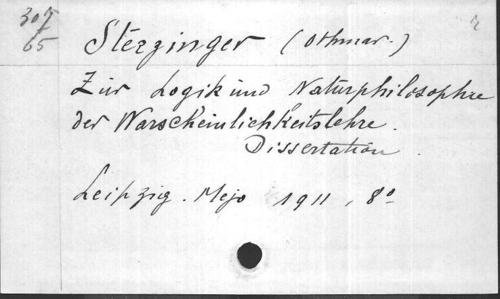 307
65
Sterzinger (Othmar.)
Zur Logik und Naturphilosophie
der Warscheinlichkeitslehre.
Dissertation.
Leipzig. Mejo 1911, 8º